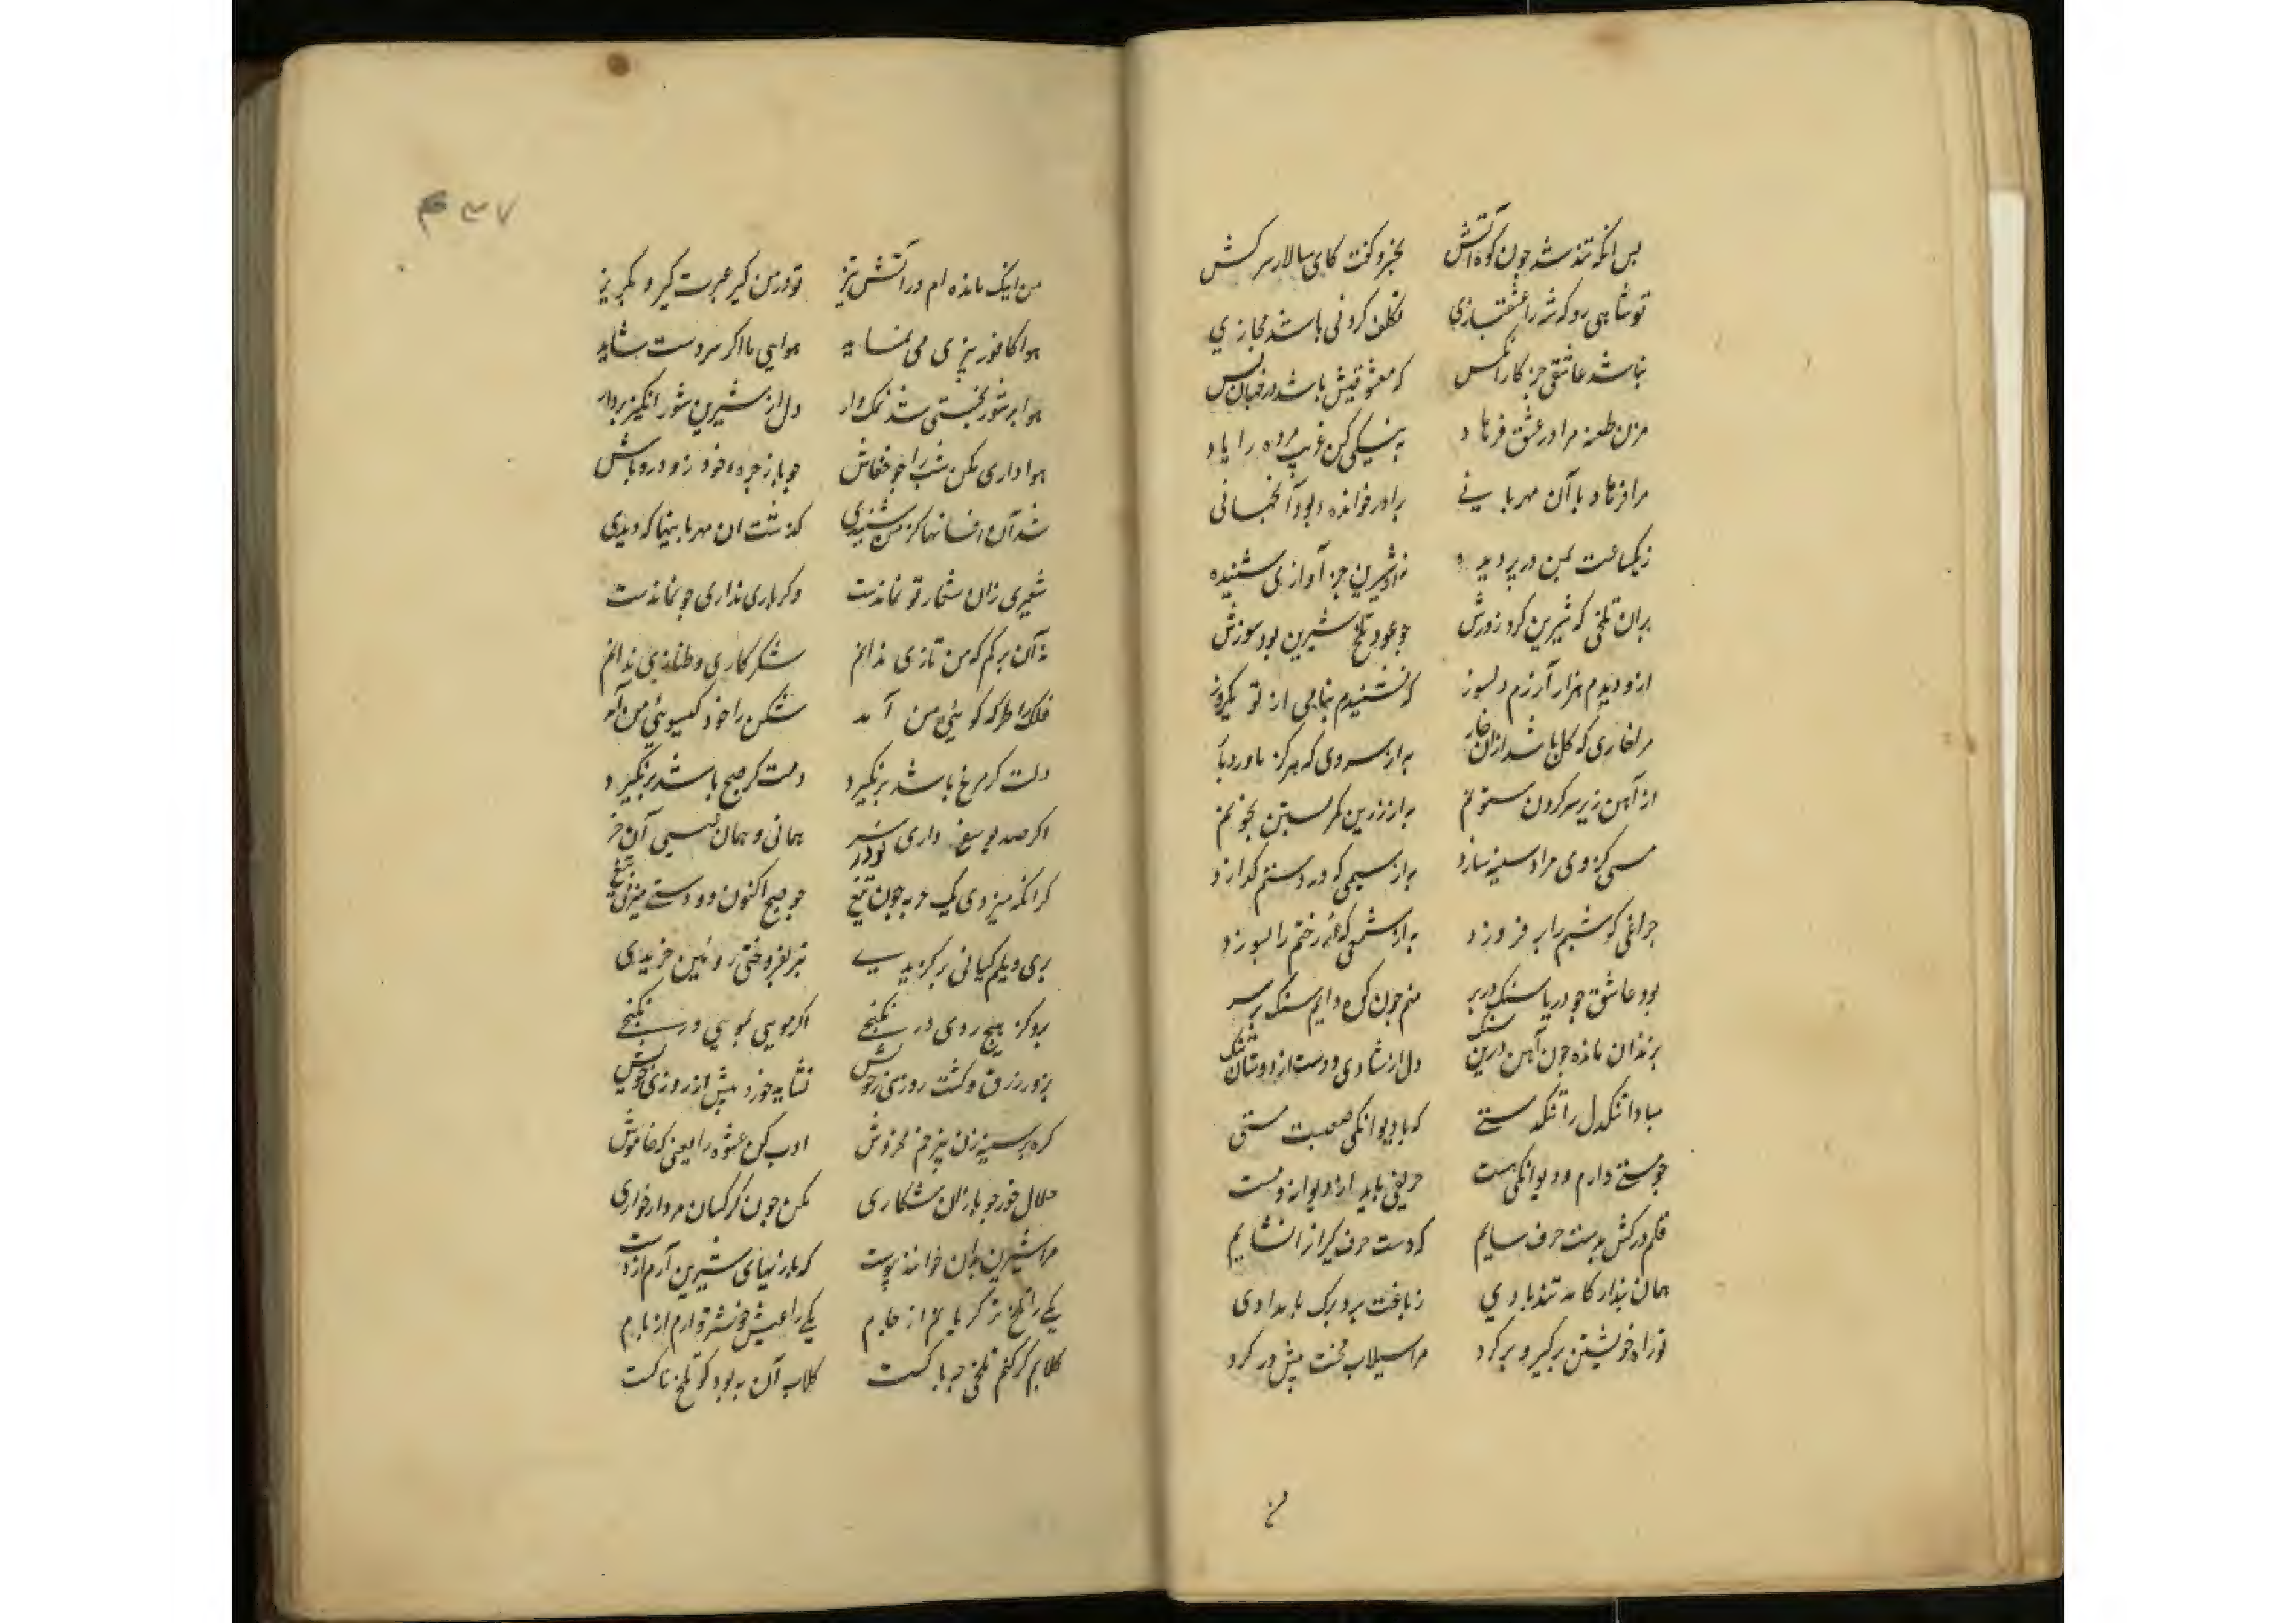 پس آنکه تند شد چون کوه آتش بخسرو گفت کای سالار سرکش
تو شاهی رو که شه را عشقبازی تکلف کردنی باشد مجازی
نباشد عاشقی جز کار آنکس که معشوقیش باشد در جهان بس
مزن طعنه مرا در عشق فرهاد به نیکی کن غریب مرده را یاد
مرا فرهاد با آن مهربانی برادر خوانده بود آنجهانی
نه یکساعت بمن در تیز دیده نه از شیرین جز آوازی شنیده
بدان تلخی که شیرین کرد روزش چو عود تلخ شیرین بود سوزش
ازو دیدم هزار آزرم دلسوز که نشنیدم پیامی از تو یکروز
مرا خاری که گل باشد ازان خار به از سروی که هرگز ناورد بار
ز آهن زیر سر کردن ستونم به از زرین کمر بستن بخونم
مسی کز وی مرا دستینه سازند به از سیمی که در دستم گدازند
چراغی کو شبم را بر فروزد به از شمعی که رختم را بسوزد
بود عاشق چو دریا سنگ در بر منم چون کوه دایم سنگ بر سر
بزندان مانده چون آهن درین سنگ دل از شادی و دست از دوستان تنگ
مبادا تنگدل را تنگدستی که با دیوانگی صعبست مستی
چو مستی دارم و دیوانگی هست حریفی ناید از دیوانه و مست
قلم درکش بدست حرف سایم که دست حرف گیران را نشایم
همان پندار کامد تند بادی ز باغت برد برگ بامدادی
تو راه خویشتن برگیر و برگرد مرا سیلاب محنت پیش در کرد
من
۴۳۷
من اینک مانده ام در آتش تیز تو در من گیر عبرت گیر و بگریز
هوا کافور بیزی می نماید هوایی ما اگر سردست شاید
هوا بر شوربختی شد نمک وار دل از شیرین شورانگیز بردار
هواداری مکن شب را چو خفاش چو باز جره خود روز رو باش
شد آن افسانها کز من شنیدی گذشت ان مهربانیها که دیدی
شعیری زان شعار تو نماندست وگر باری نداری جو نماندست
نه آن ترکم که من تازی ندانم شکر کاری و طنازی ندانم
فلک را طرکه گوئی من آمد شکن را خود گیسوی من آمد
دلت گر مرغ باشد بر نگیرد دمت گر صبح باشد بر نگیرد
اگر صد بوسف داری نودر همانی و همان عیسی آن خر
گر انگه میزدی یک حربه چون تیغ چو صبح اکنون دو دستی میزنی تیغ
بری دیلم کیانی بر گزیدی تبر بفروختی روئین خریدی
برو کز هیچ روی در نگنجی اگر مویی بمویی در نگنجی
بزور رزق و گشت روزی خویش نشاید خورد بیش از روزی خویش
گره بر سینه زن بی رنج مخروش ادب کن عشوه را یعنی که خاموش
حلال خور چو بازان شکاری مکن چون کرکسان مردارخواری
مرا شیرین بدان خوانند پیوست که بازیهای شیرین آرم از دست
یکی را تلخ تر گریانم از جام یکی را عیش خوشتر دارم از نام
گلابم گر کنم تلخی چه باکست گلاب آن به بود کو تلخ ناکست